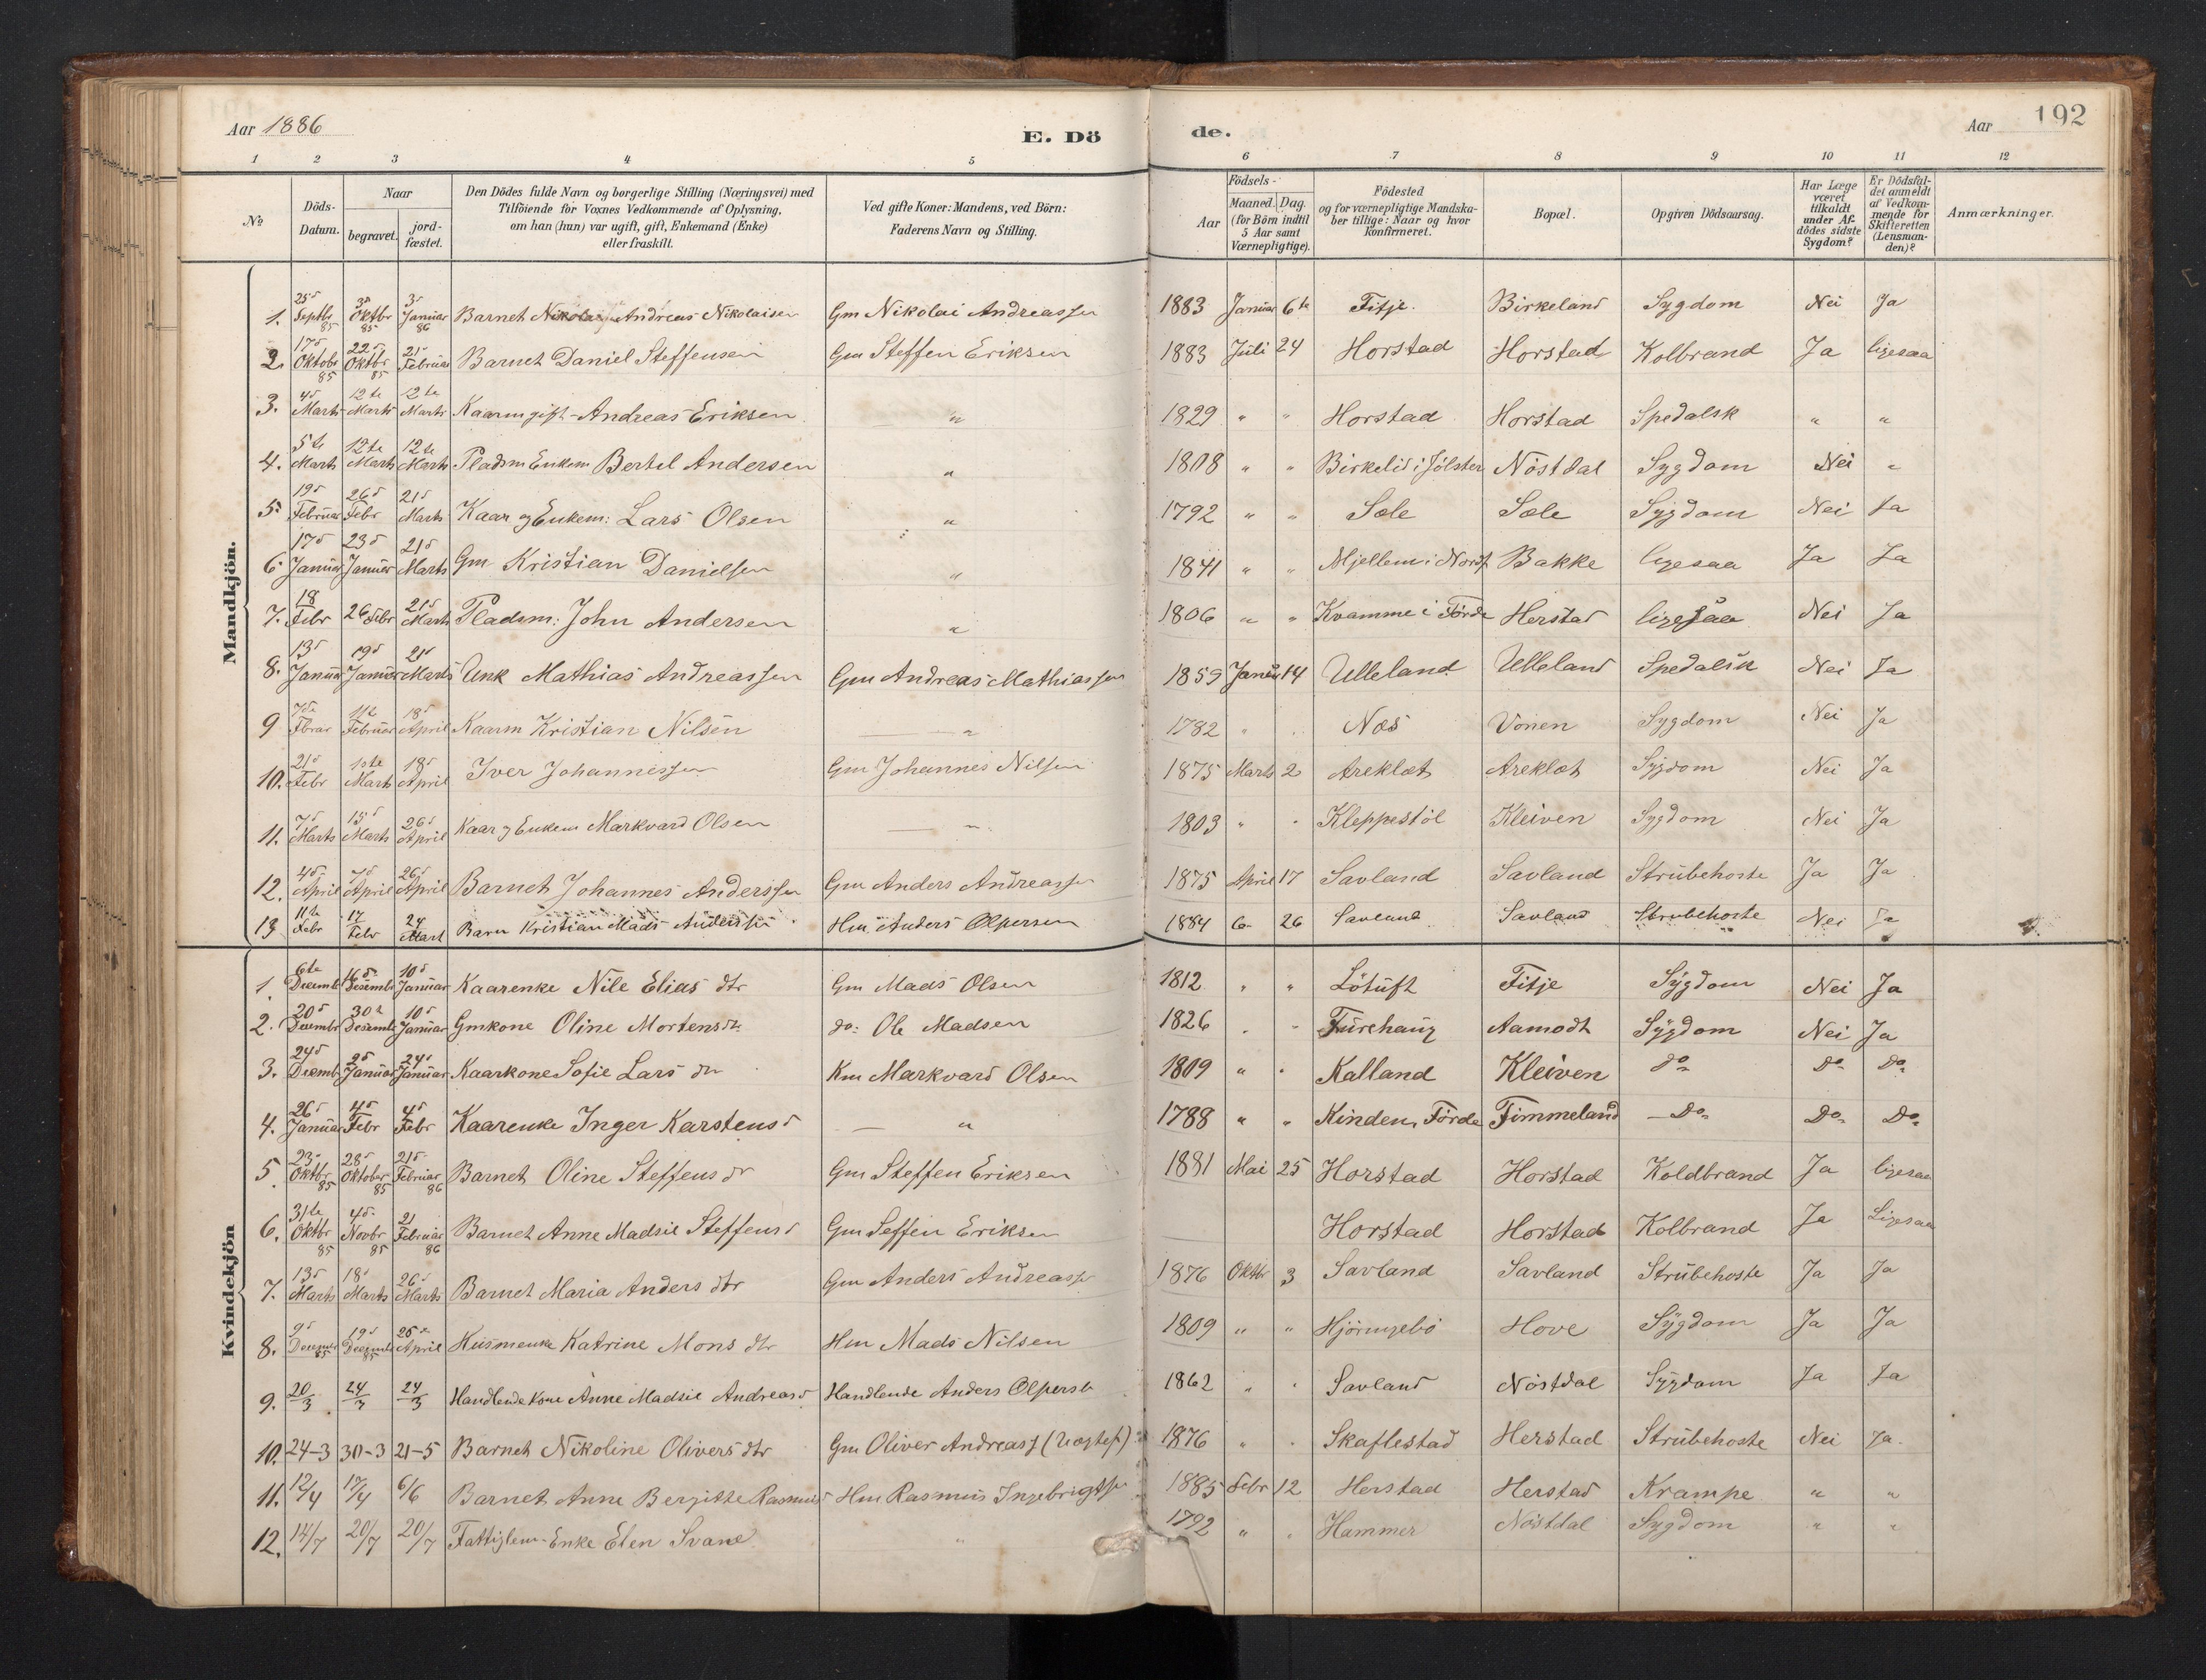 Aar 1886 E. Dö de. Aar 192
1 2 3 4 5 6 7 8 9 10 11 12
№ Döds-Datum. Naar begravet. jord-fæstet. Den Dödes fulde Navn og borgerlige Stilling (Næringsvei) med Tilföiende for Voxnes Vedkommende af Oplysning, om han (hun) var ugift, gift, Enkemand (Enke) eller fraskilt. Ved gifte Koner: Mandens, ved Börn: Faderens Navn og Stilling. Aar Födsels- Maaned. Dag. (for Börn indtil 5 Aar samt Værnepligtige). Födested og for værnepligtige Mandskaber tillige: Naar og hvor Konfirmeret. Bopæl. Opgiven Dödsaarsag. Har Læge været tilkaldt under Afdödes sidste Sygdom? Er Dödsfaldet anmeldt af Vedkommende for Skifteretten (Lensmanden)? Anmærkninger.
Mandkjön.
1. 25 Septbr 85 3 Oktbr 85 3 Januar 86 Barnet Andreas Nikolaisen Gm Nikolai Andreassen 1883 Januar 6te Fitje. Birkeland Sygdom Nei Ja
2. 17 Oktobr 85 22 Oktbr 85 21 Februar Barnet Daniel Steffensen Gm Steffen Eriksen 1883 Juli 24 Horstad Horstad Kolbrand Ja ligesaa
3. 4 Marts 12te Marts 12te Marts Kaarm gift Andreas Eriksen " 1829 " " Horstad Horstad Spedalsk " "
4. 5te Marts 12te Marts 12te Marts Pladsm Enkem Bertel Andersen " 1808 " " Birkelid i Jölster Nöstdal Sygdom Nei "
5. 19 Februar 26 Febr 21 Marts Kaar og Enkem: Lars Olsen " 1792 " " Sæle Sæle Sygdom Nei Ja
6. 17 Januar 23 Januar 21 Marts Gm Kristian Danielsen " 1841 " " Mjellem i Nordf Bakke ligesaa Ja Ja
7. 18 Febr 26 Febr 21 Marts Pladsm: John Andersen " 1806 " " Kvamme i Förde Herstad ligesaa Nei Ja
8. 13 Januar 19 Januar 21 Marts Unk Mathias Andreassen Gm Andreas Mathiassen 1859 Januar 14 Ulleland Ulleland Spedalsk Nei Ja
9 7de Fbrar 11te Februar 18 April Kaarm Kristian Nilsen " 1782 " " Næs Vonen Sygdom Nei Ja
10. 21 Febr 1ste Marts 18 April Iver Johannessen Gm Johannes Nilsen 1875 Marts 2 Areklæt Areklæt Sygdom Nei Ja
11. 7 Marts 15 Marts 26 April Kaar og Enkem Markvard Olsen " 1803 " " Kleppestöl Kleiven Sygdom Nei Ja
12. 4 April 7 April 26 April Barnet Johannes Anderssen Gm Anders Andreassen 1875 April 17 Savland Savland Strubehoste Ja Ja
13 11te Febr 17 Febr 24 Mart Barn Kristian Mads Anderssen Hm Anders Olpersen 1884 6 26 Savland Savland Strubehoste Nei Ja
Kvindekjön
1. 6te Decembr 16 Desembr 10 Januar Kaarenke Nile Elias dtr Gm Mads Olsen 1812 " " Lötuft Fitje Sygdom Nei Ja
2. 20 Decembr 30 Desembr 10 Januar Gmkone Oline Mortensdtr do: Ole Madsen 1826 " " Furehaug Aamodt Sygdom Nei Ja
3. 24 Decembr 2 Januar 24 Januar Kaarkone Sofie Lars dtr Km Markvard Olsen 1809 " " Kalland Kleiven do Do Do
4. 26 Januar 4 Febr 4 Febr Kaarenke Inger Karstensd " 1788 " " Kinden, Förde Fimmeland Do Do Do
5. 23 Oktbr 85 28 Oktober 85 21 Februar 86 Barnet Oline Steffensdr Gm Steffen Eriksen 1881 Mai 25 Horstad Horstad Koldbrand Ja ligesaa
6. 31te Oktbr 85 4 Novbr 85 21 Februar 86 Barnet Anne Madsie Steffensd Gm Seffen Eriksen Horstad Horstad Kolbrand Ja Ligesaa
7. 13 Marts 18 Marts 26 Marts Barnet Maria Anders dtr Gm Anders Andreass 1876 Oktbr 3 Savland Savland Strubehoste Ja Ja
8. 9 December 85 19 Decembr 85 25 April Husmenke Katrine Mons dtr Hm Mads Nilsen 1809 " " Hjörungebö Hove Sygdom Ja Ja
9. 20/3 24/3 24/3 Handlende Kone Anne Madsie Andreasd Handlende Anders Olpersen 1862 " " Savland Nöstdal Sygdom Ja Ja
10. 24-3 30-3 21-5 Barnet Nikoline Olivers dtr Gm Oliver Andreass 1876 " " Skaflestad Herstad Strubehoste Nei Ja.
11. 12/4 17/4 6/6 Barnet Anne Bergitte Rasmusd Hm Rasmus Ingebrigts 1885 Febr 12 Herstad Herstad Krampe " "
12. 14/7 20/7 20/7 Fattiglem-Enke Elen Svane " 1792 " " Hammer Nöstdal Sygdom " "